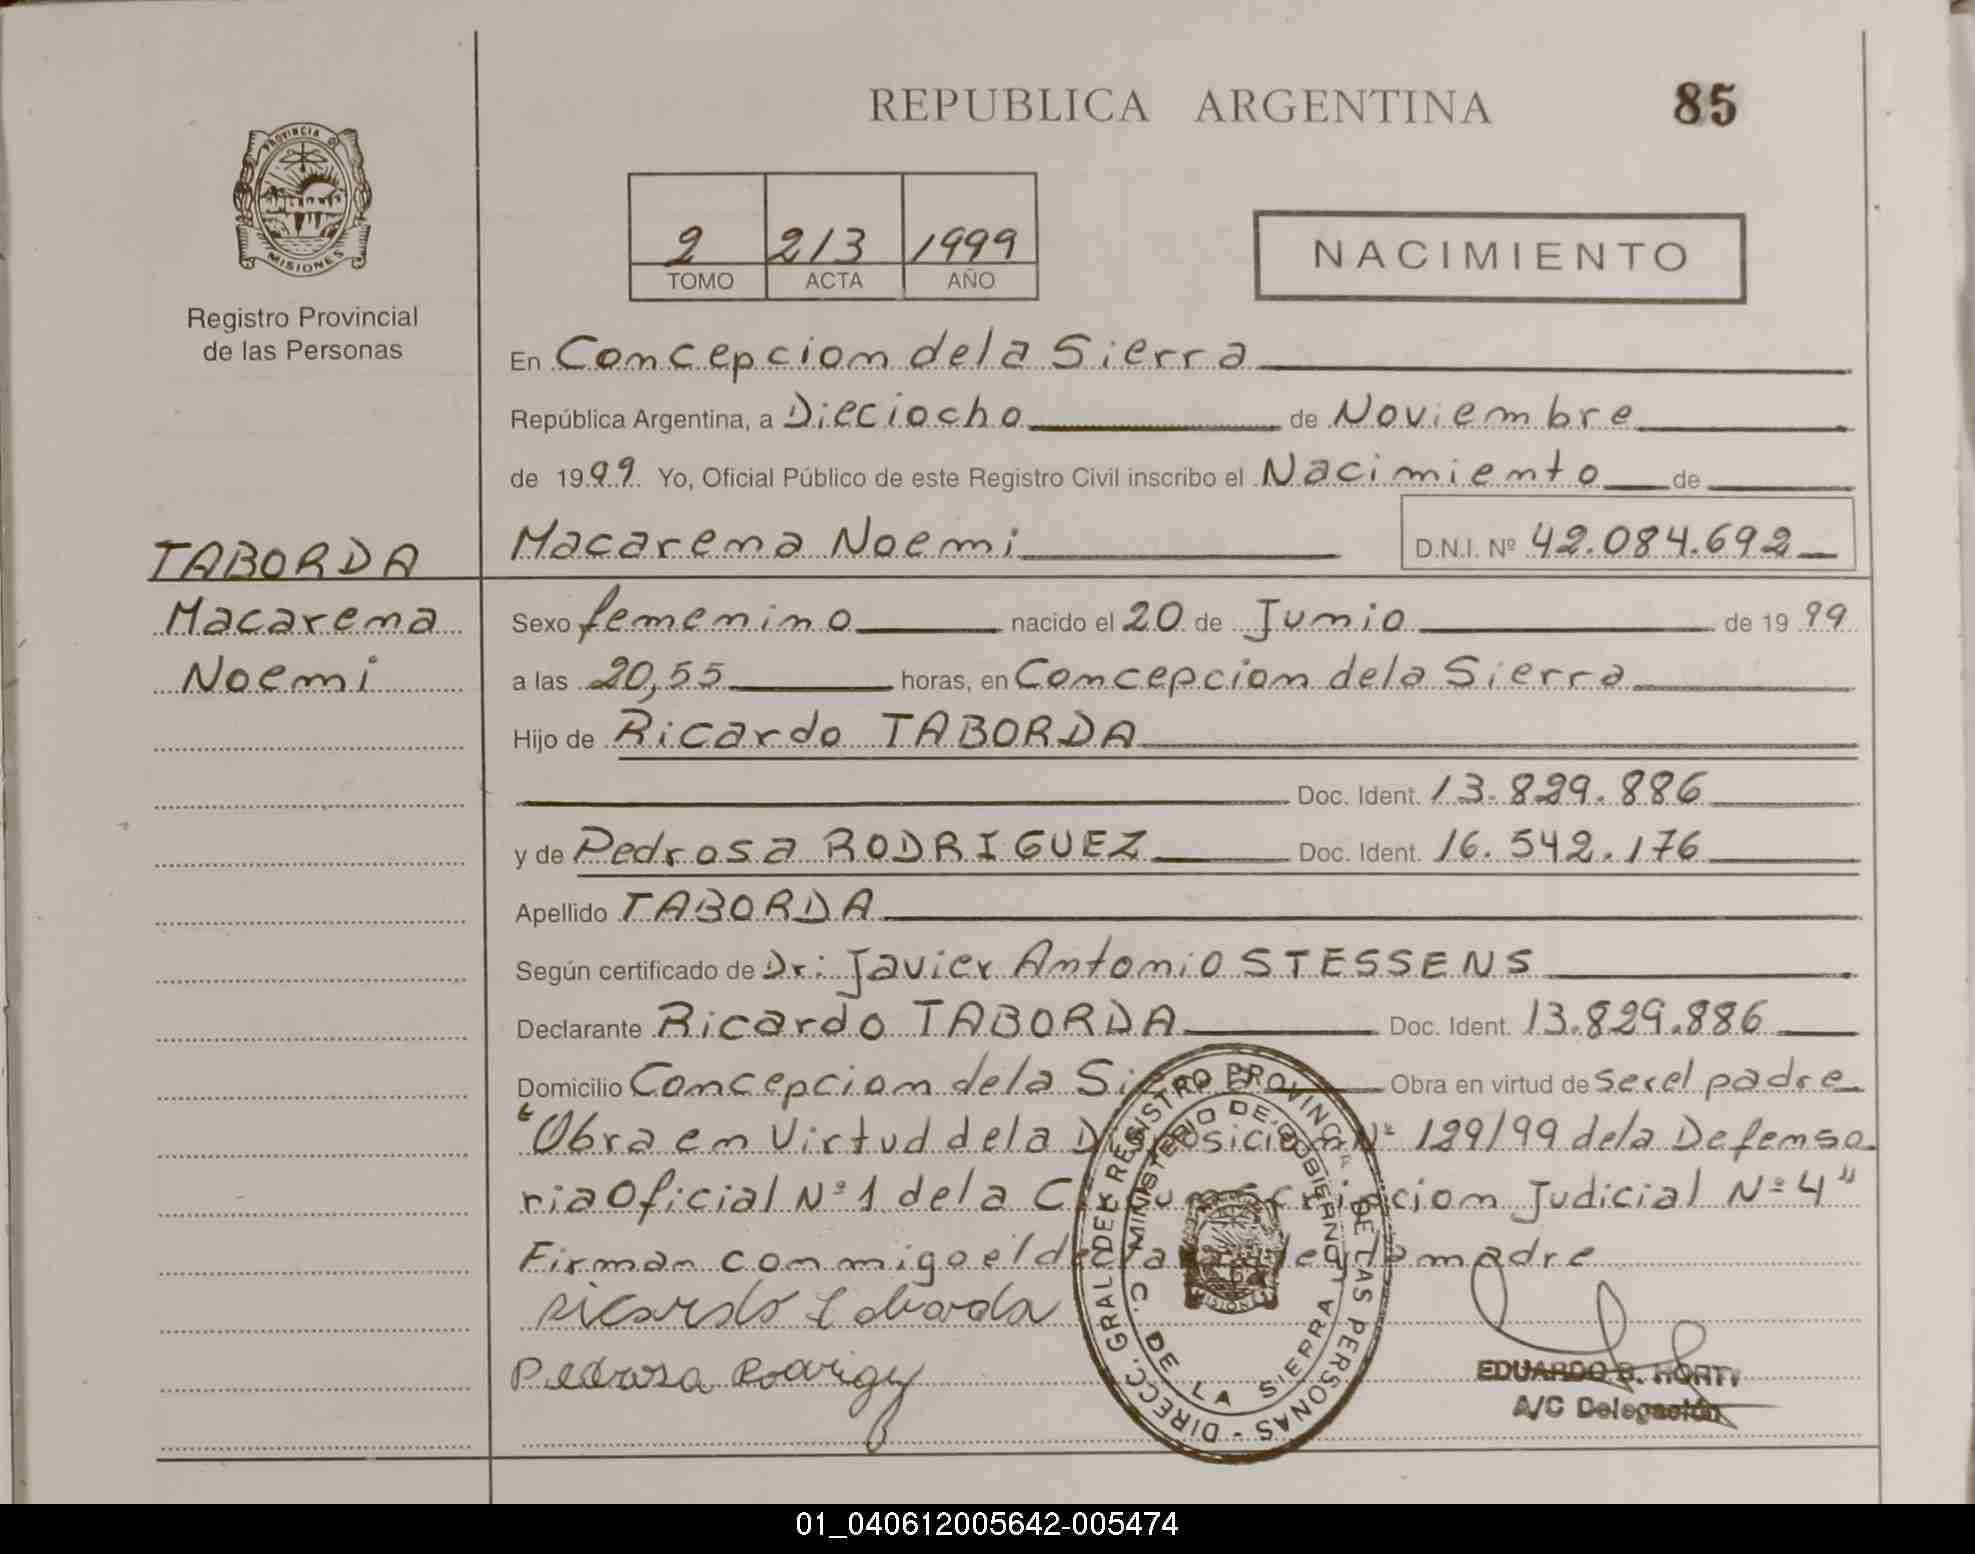 REPUBLICA ARGENTINA
85
PROVINCIA DE
MISIONES
Registro Provincial
de las Personas
2 213 1999
TOMO ACTA AÑO
NACIMIENTO
En Concepcion dela Sierra
República Argentina, a Dieciocho de Noviembre
de 1999. Yo, Oficial Público de este Registro Civil inscribo el Nacimiento de
TABORDA
Macarena Noemi D.N.I. Nº 42.084.692
Macarena
Noemi
Sexo femenino nacido el 20 de Junio de 19 99
a las 20,55 horas, en Concepcion dela Sierra
Hijo de Ricardo TABORDA
Doc. Ident. 13.829.886
y de Pedrosa RODRIGUEZ Doc. Ident. 16.542.176
Apellido TABORDA
Según certificado de Dr: Javier Antonio STESSENS
Declarante Ricardo TABORDA Doc. Ident. 13.829.886
Domicilio Concepcion dela Sierra Obra en virtud de ser el padre
"Obra en Virtud dela Disposicion Nº 129/99 dela Defenso
ria Oficial Nº 1 dela Circunscripcion Judicial Nº 4"
Firman conmigo el declarante y la madre
Pedrosa Rodrigz
DIRECC. GRAL. DEL REGISTRO PROVINCIAL DE LAS PERSONAS -
MINISTERIO DE GOBIERNO
C. DE LA SIERRA
MISIONES
EDUARDO B. HORT
A/C Delegación
01_040612005642-005474